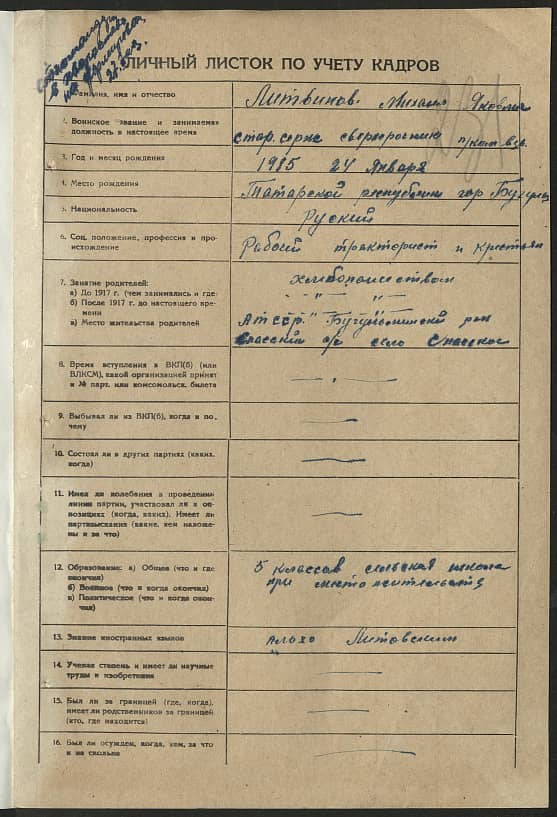 ЛИЧНЫЙ ЛИСТОК ПО УЧЕТУ КАДРОВ
Фамилия, имя и отчество
Литвинов Михаил Яковлич
2. Воинское звание и занимаемая
должность в настоящее время
3. Год и месяц рождения
1915 24 Января
4. Место рождения
Татарской республики гор.
5. Национальность
Руский
6. Соц. положение, профессия и про-
исхождение
Рабоий тракторист и крестьян
7. Занятие родителей:
а) До 1917 г. (чем занимались и где)
б) После 1917 г. до настоящего вре-
мени
в) Место жительства родителей
хлебопашеством
— " — "
село Спасское
8. Время вступления в ВКП(б) (или
ВЛКСМ), какой организацией принят
и № парт. или комсомольск. билета
9. Выбывал ли из ВКП(б), когда и по-
чему
10. Состоял ли в других партиях (каких,
когда)
11. Имел ли колебания в проведении
линии партии, участвовал ли в оп-
позициях (когда, каких). Имеет ли
партвзыскания (какие, кем наложе-
ны и за что)
12. Образование: а) Общее (что и где
окончил)
б) Военное (что и когда окончил)
в) Политическое (что и когда окон-
чил)
5 классав сельская школа
при
13. Знание иностранных языков
плохо Литовским
14. Ученая степень и имеет ли научные
труды и изобретения
15. Был ли за границей (где, когда),
имеет ли родственников за границей
(кто, где находится)
16. Был ли осужден, когда, кем, за что
и на сколько